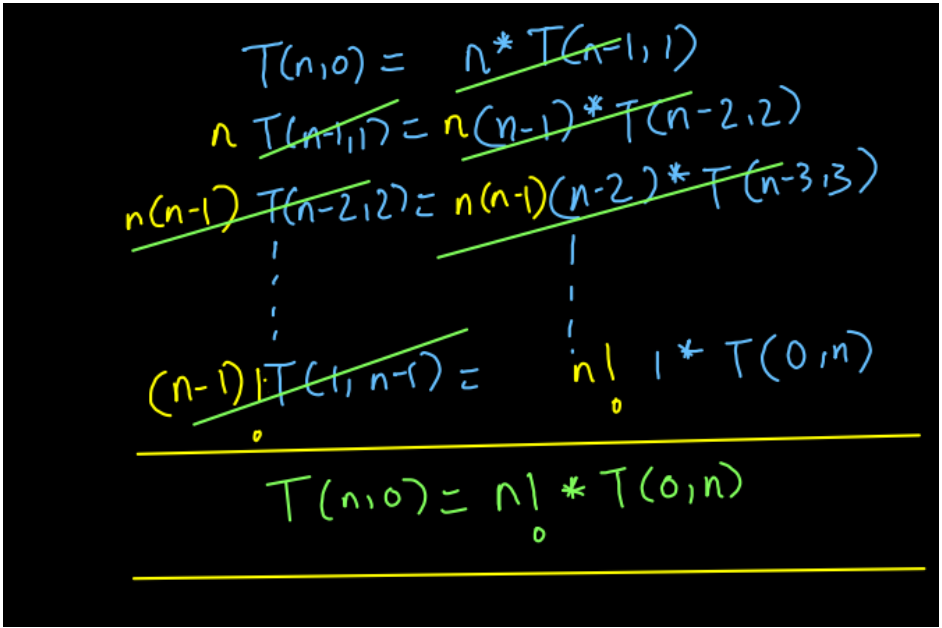 T(n,0) = n* T(n-1,1)
n T(n-1,1) = n(n-1)* T(n-2,2)
n(n-1) T(n-2,2) = n(n-1)(n-2)* T(n-3,3)
(n-1)! T(1, n-1) = n! 1* T(0,n)
T(n,0) = n! * T(0,n)